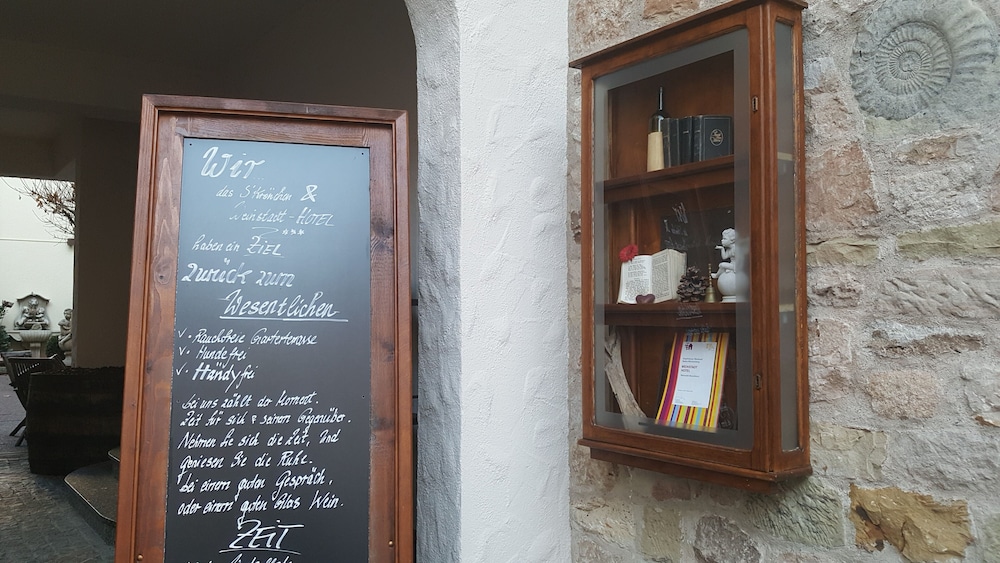 Wir
das S'Krönchen &
Weinstatt-HOTEL
haben ein ZIEL
Zurück zum
Wesentlichen
✓ • Rauchfreie Gartenterrasse
✓ • Hundefrei
✓ • Händyfrei
bei uns zählt der Moment.
Zeit für sich & seinem Gegenüber.
Nehmen Sie sich die Zeit, und
geniesen Sie die Ruhe.
bei einem guten Gespräch,
oder einem guten Glas Wein.
ZEIT